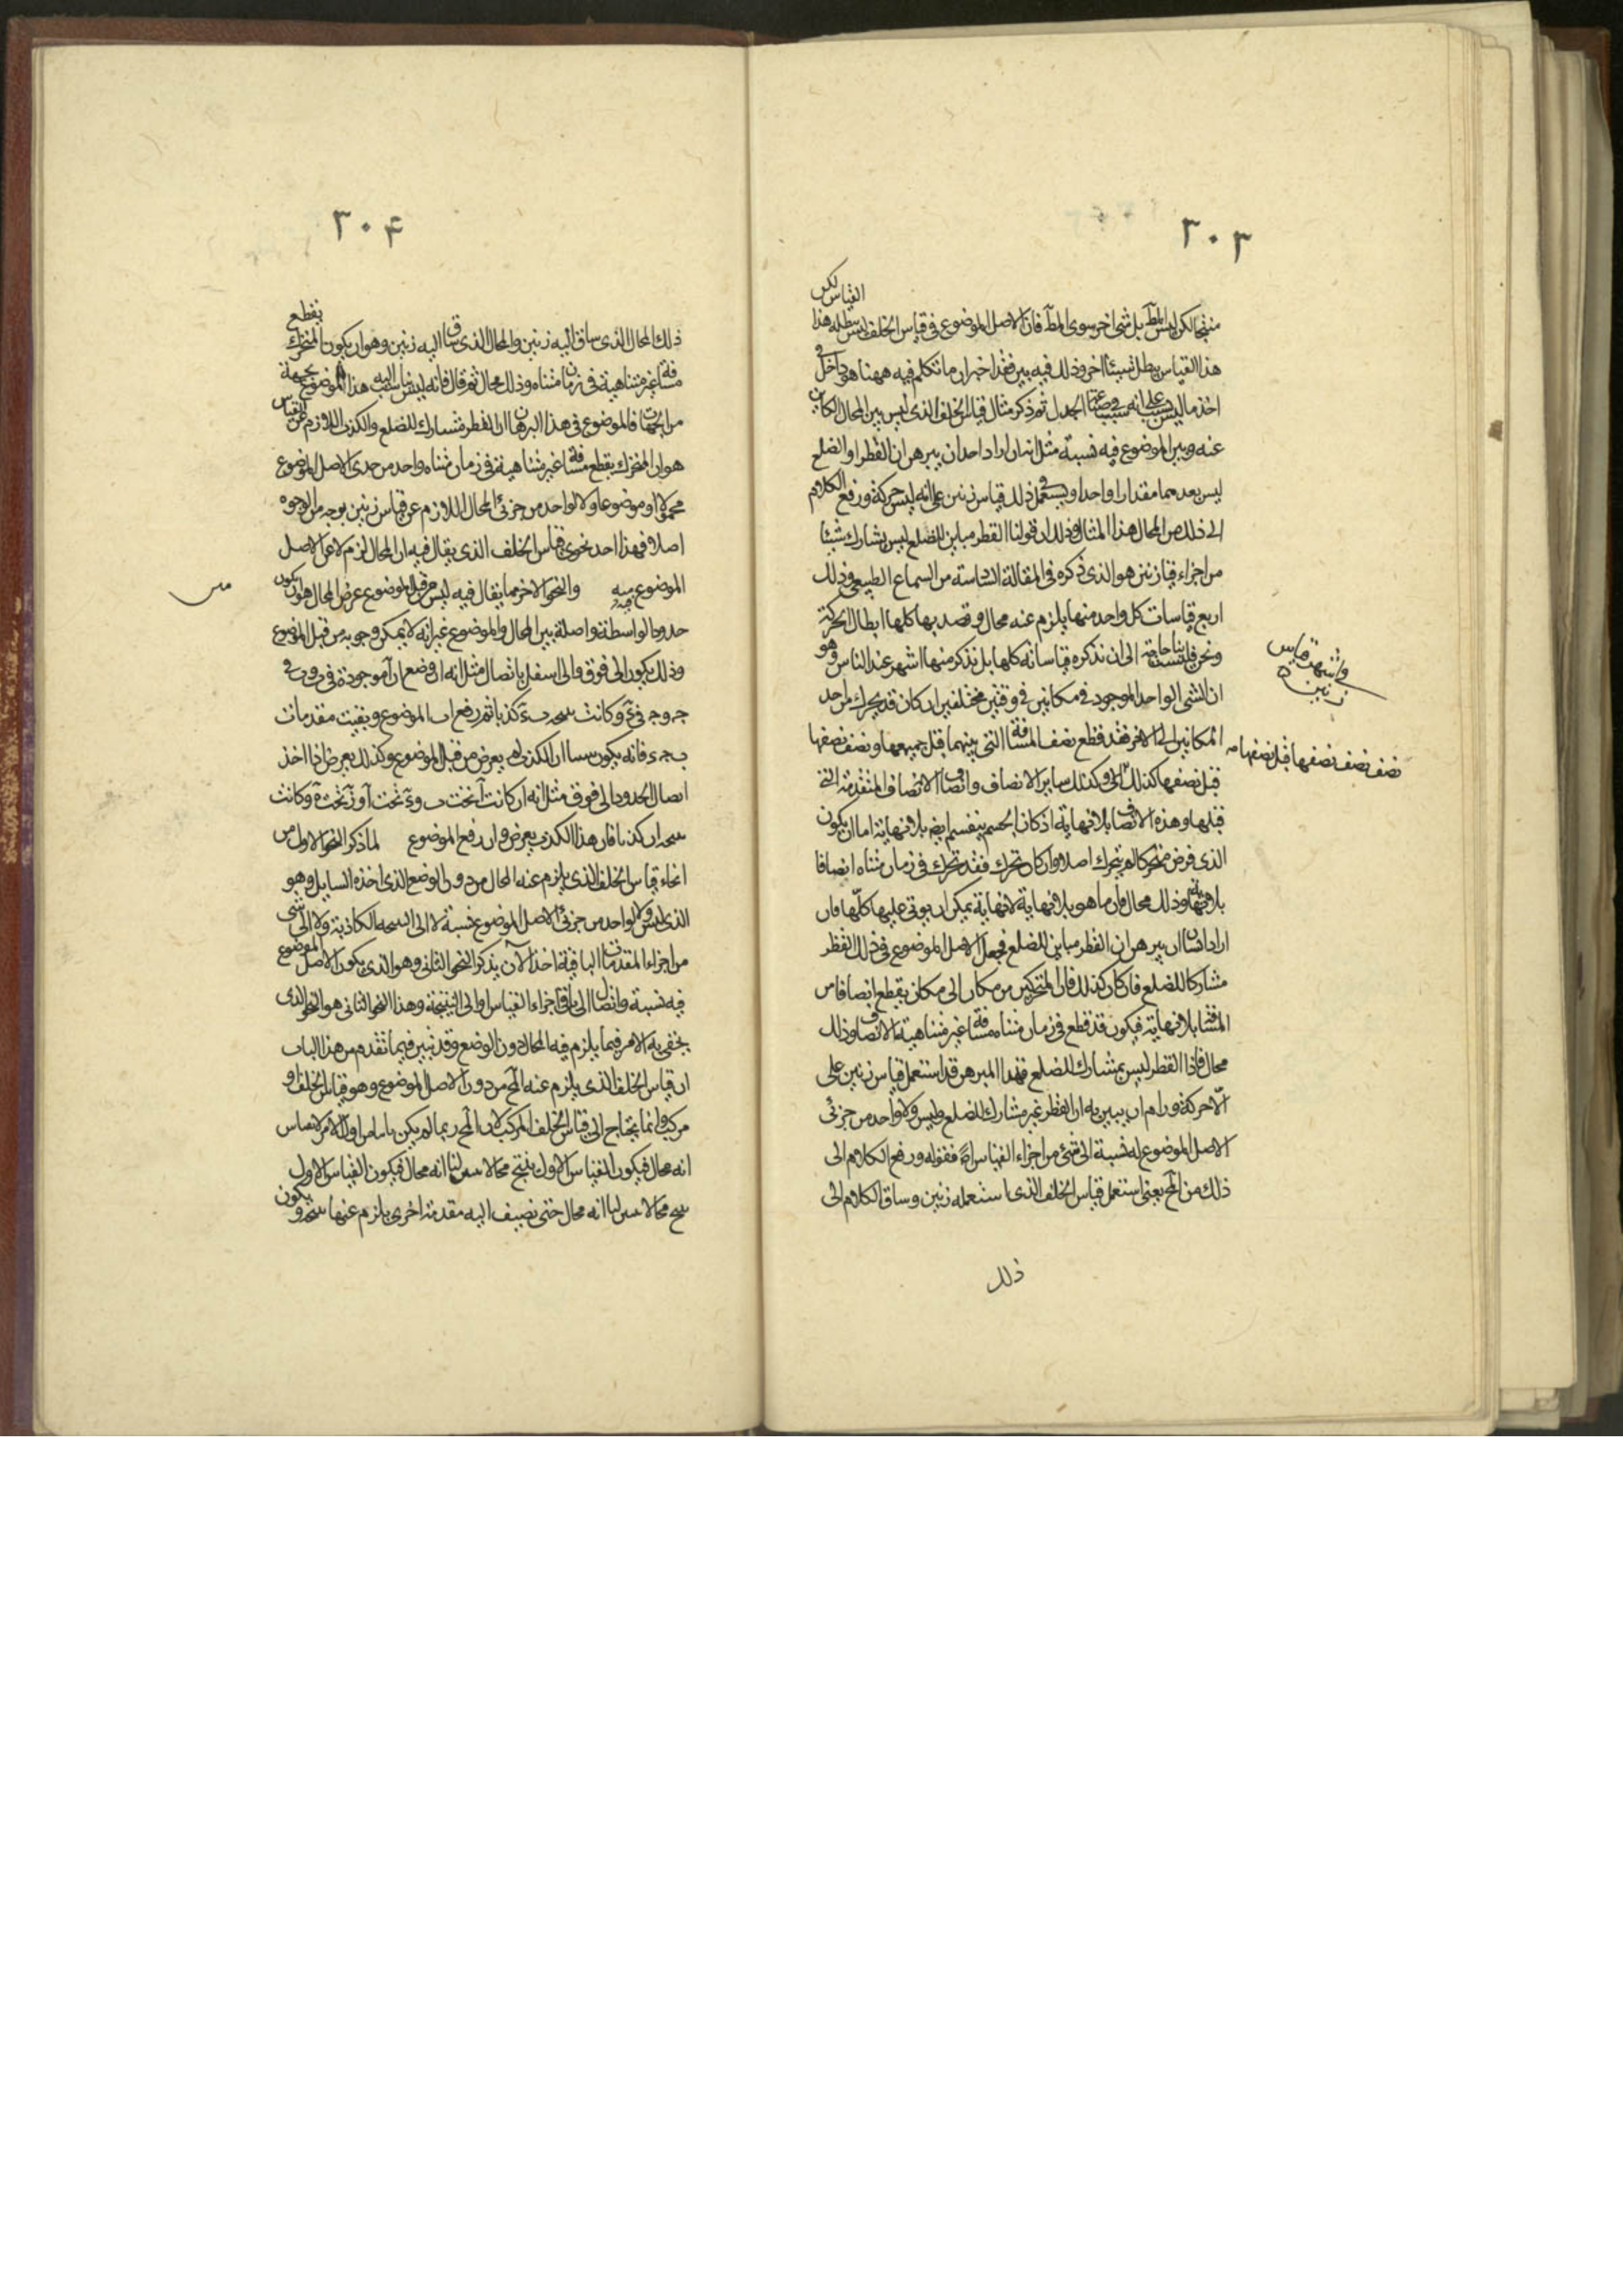 ٣٠٣
القياس لكن
منتجا لكن ليس للمط بل شئ اخر سوى المط فان الاصل الموضوع فى قياس الخلف ليس يبطله هذا
هذا القياس يبطل شيئا اخر وذلك فيه بين فقد اخبر ان ما نتكلم فيه ههنا هو داخل فى
اخذ ما ليس بسبب على انه سبب الجدل ثم ذكر مثال قياس الخلف الذى ليس بين المحال الكاين
عنه وبين الموضوع فيه نسبة مثل ان اراد احد ان يبرهن ان القطر او الضلع
ليس بعدهما مقدارا واحدا ويستعمل فى ذلك قياس زنين على انه ليس حركة ورفع الكلام
الى ذلك من المحال هذا المثال وذلك ان قولنا القطر مباين للضلع ليس يشارك شيئا
من اجزاء قياس زنين هو الذى ذكره فى المقالة السادسة من السماع الطبيعى وذلك
اربع قياسات كل واحد منها يلزم عنه محال وقصد بها كلها ابطال الحركة
ونحن فليست بنا حاجة الى ان نذكره قياساته كلها بل نذكر منها اشهر عند الناس وهو
واشهر قياس
زنين
ان الشئ الواحد الموجود فى مكانين فى وقتين مختلفين ان كان قد يحرك من احد
المكانين الى الاخر فقد قطع نصف المسافة التى بينهما قبل جميعها ونصف نصفها
نصف نصف نصفها قبل نصفها صه
قبل نصفها كذلك وكذلك ساير الانصاف وانصاف الانصاف المتقدمة التى
قبلها وهذه الانصاف بلا نهاية اذ كان الجسم ينقسم ايضا بلا نهاية اما ان يكون
الذى فرض متحركا لم يتحرك اصلا وان كان تحرك فقد تحرك فى زمان متناه انصافا
بلا نهاية وذلك محال فان ما هو بلا نهاية لا نهاية يمكن ان يوتى عليها كلها فان
اراد انسان ان يبرهن ان القطر مباين للضلع فجعل الاصل الموضوع فى ذلك القطر
مشاركا للضلع فان كان كذلك فان المتحركين من مكان الى مكان يقطع انصافا من
المسافة بلا نهاية فيكون قد قطع فى زمان متناه مسافة غير متناهية الانصاف وذلك
محال فاذا القطر ليس بمشارك للضلع فهذا المبرهن قد استعمل قياس زنين على
الا حركة ورام ان يبين به ان القطر غير مشارك للضلع وليس ولا واحد من جزئى
الاصل الموضوع له نسبة الى شئ من اجزاء القياس فقوله ورفع الكلام الى
ذلك من المح يعنى استعمل قياس الخلف الذى استعمله زنين وساق الكلام الى
ذلك
٣٠۴
ذلك المحال الذى ساق اليه زنين والمحال الذى ساق اليه زنين وهو ان يكون المتحرك يقطع
مسافة غير متناهية فى زمان متناه وذلك محال ثم قال فانه ليس يناسب هذا الموضوع بجهة
من الجهات فالموضوع فى هذا البرهان ان القطر مشارك للضلع والكذب اللازم عن القياس
هو ان المتحرك يقطع مسافة غير متناهية فى زمان متناه واحد من حدى الاصل الموضوع
محمولا او موضوعا ولا لواحد من جزئى المحال اللازم عن قياس زنين بوجه من الوجوه
اصلا فهذا احد نحوى قياس الخلف الذى يقال فيه ان المحال لزم لا عن الاصل
الموضوع فيه والنحو الاخر مما يقال فيه ليس من قبل الموضوع عرض المحال هو ان يكون
حدود الواسطة واصلة بين المحال والموضوع غير انه لا يمكن وجوبه من قبل الموضوع
وذلك يكون الى فوق والى اسفل باتصال مثل انه ان وضع ان ا موجودة فى ب و ب فى
ج و ج فى ء وكانت ب ء كذبا ثم رفع ا ب الموضوع وبقيت مقدمات
ب ج ء فانه يكون الكذب لم يعرض من قبل الموضوع وكذلك يعرض اذا اخذ
اتصال الحدود الى فوق مثل انه ان كانت ا تحت ب و ء تحت ا و ز تحت ء وكانت
كذبا فان هذا الكذب يعرض وان رفع الموضوع لما ذكر النحو الاول من
انحاء قياس الخلف الذى يلزم عنه المحال من دون الوضع الذى اخذه السايل وهو
الذى ليس ولا لواحد من جزئى الاصل الموضوع نسبة لا الى النتيجة الكاذبة ولا الى شئ
من اجزاء المقدمات الباقية اخذ الآن يذكر النحو الثانى وهو الذى يكون الاصل الموضوع
فيه نسبة واتصال الى باقى اجزاء القياس والى النتيجة وهذا النحو الثانى هو النحو الذى
يخفى به الامر فيما يلزم فيه المحال دون الوضع وقد تبين فيما تقدم من هذا الباب
ان قياس الخلف الذى يلزم عنه المح من دون الاصل الموضوع وهو قياس الخلف
مركب وانما يحتاج الى قياس الخلف المركب لان المح ربما لم يكن
انه محال فيكون القياس الاول ينتج محالا انه محال فيكون القياس الاول
محالا انه محال حتى نضيف اليه مقدمة اخرى يلزم عنها